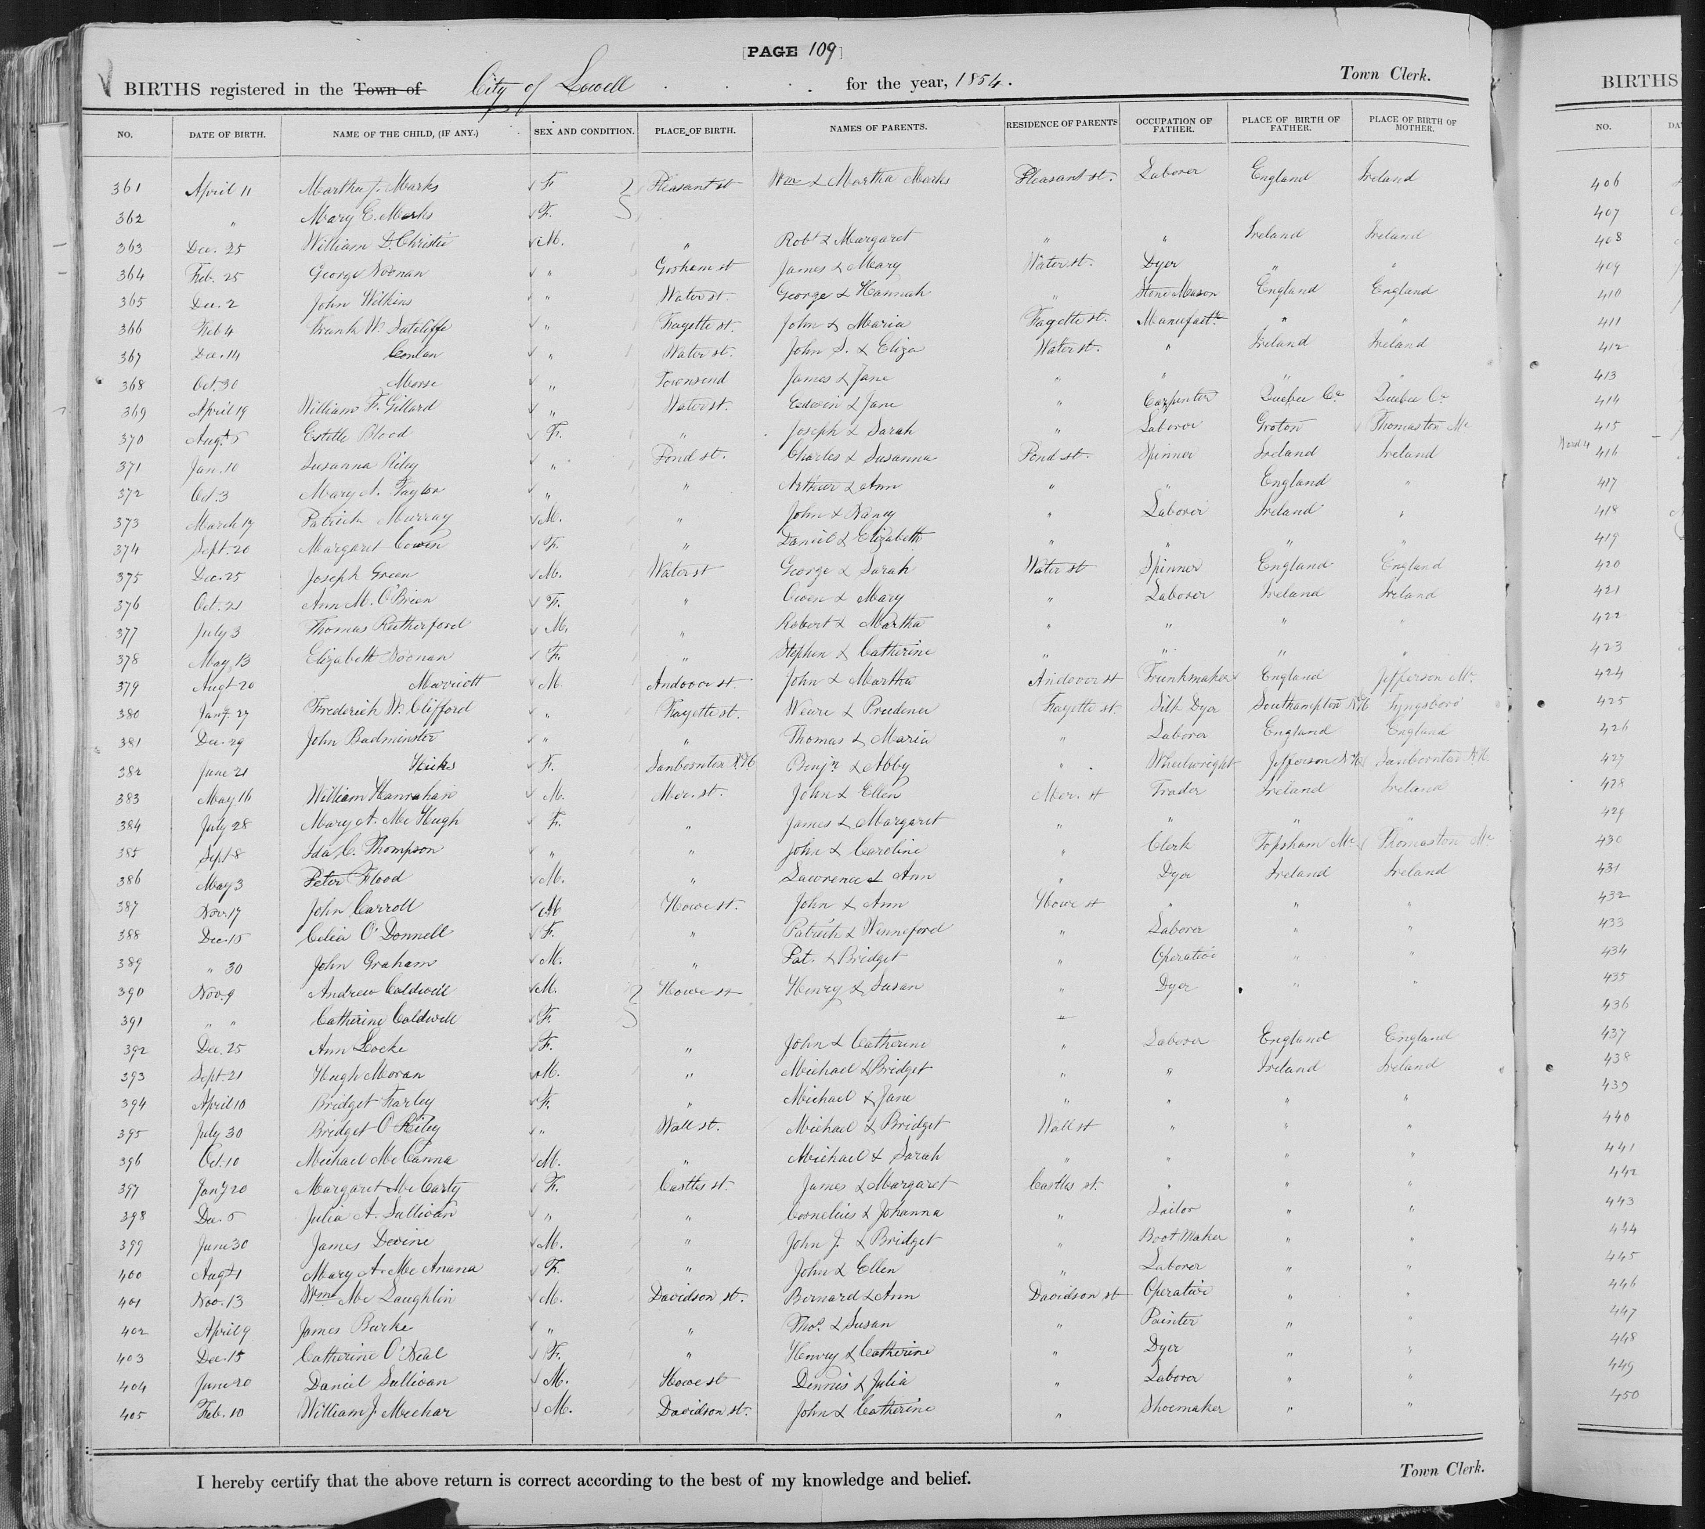 [PAGE 109]
BIRTHS registered in the Town of City of Lowell for the year, 1854. Town Clerk.
NO. DATE OF BIRTH. NAME OF THE CHILD, (IF ANY.) SEX AND CONDITION. PLACE OF BIRTH. NAMES OF PARENTS. RESIDENCE OF PARENTS OCCUPATION OF FATHER. PLACE OF BIRTH OF FATHER. PLACE OF BIRTH OF MOTHER.
361 April 11 Martha J. Marks F. Pleasant st Wm & Martha Marks Pleasant st. Laborer England Ireland
362 " Mary E. Marks F.
363 Dec. 25 William D. Christie M. " Robt & Margaret " " Ireland Ireland
364 Feb. 25 George Noonan " Gorham st James & Mary Water st. Dyer " "
365 Dec. 2 John Wilkins " Water st. George & Hannah " Stone Mason England England
366 Feb 4 Frank W. Sutcliffe " Fayette st. John & Maria Fayette st. Manufactr " "
367 Dec. 14 Conlan " Water st. John S. & Eliza Water st. " Ireland Ireland
368 Oct. 30 Morse " Townsend James & Jane " " " "
369 April 19 William F. Gillard " Water st. Edwin & Jane " Carpenter Quebec Ca Quebec Ca
370 Augt 5 Estelle Blood F. " Joseph & Sarah " Laborer Groton Thomaston Me
371 Jan. 10 Susanna Riley " Pond st. Charles & Susanna Pond st. Spinner Ireland Ireland
372 Oct. 3 Mary A. Taylor " " Arthur & Ann " " England "
373 March 17 Patrick Murray M. " John & Nancy " Laborer Ireland "
374 Sept. 20 Margaret Cowen F. " Daniel & Elizabeth " " " "
375 Dec. 25 Joseph Green M. Water st George & Sarah Water st Spinner England England
376 Oct. 21 Ann M. O'Brien F. " Owen & Mary " Laborer Ireland Ireland
377 July 3 Thomas Rutherford M. " Robert & Martha " " " "
378 May 13 Elizabeth Noonan F. " Stephen & Catherine " " " "
379 Augt 20 Marriott M. Andover st. John & Martha Andover st Trunkmaker England Jefferson Me
380 Jany. 27 Frederick W. Clifford " Fayette st. Weare & Prudence Fayette st. Silk Dyer Southampton N.H. Tyngsboro'
381 Dec. 29 John Badminster " " Thomas & Maria " Laborer England England
382 June 21 Hicks F. Sanbornton N.H. Benjn & Abby " Wheelwright Jefferson N.H. Sanbornton N.H.
383 May 16 William Hanrahan M. Mer. st. John & Ellen Mer. st Trader Ireland Ireland
384 July 28 Mary A. Mc Hugh F. " James & Margaret " " " "
385 Sept 8 Ida C. Thompson " " John & Caroline " Clerk Topsham Me Thomaston Me
386 May 3 Peter Flood M. " Lawrence & Ann " Dyer Ireland Ireland
387 Nov. 17 John Carroll M Howe st. John & Ann Howe st " " "
388 Dec. 15 Celia O'Donnell F. " Patrick & Winneford " Laborer " "
389 " 30 John Graham M. " Pat. & Bridget " Operative " "
390 Nov. 9 Andrew Caldwell M. Howe st Henry & Susan " Dyer " "
391 " " Catherine Caldwell F. "
392 Dec. 25 Ann Locke F. " John & Catherine " Laborer England England
393 Sept. 21 Hugh Moran M. " Michael & Bridget " " Ireland Ireland
394 April 10 Bridget Farley F. " Michael & Jane " " " "
395 July 30 Bridget O'Riley " Wall st. Michael & Bridget Wall st " " "
396 Oct. 10 Michael Mc Canna M. " Michael & Sarah " " " "
397 Jany 20 Margaret Mc Carty F. Castles st. James & Margaret Castles st. " " "
398 Dec. 5 Julia A. Sullivan " " Cornelius & Johanna " Tailor " "
399 June 30 James Devine M. " John J. & Bridget " Boot Maker " "
400 Augt 1 Mary A. Mc Anana F. " John & Ellen " Laborer " "
401 Nov. 13 Wm Mc Laughlin M. Davidson st. Bernard & Ann Davidson st Operative " "
402 April 9 James Burke " " Thos. & Susan " Painter " "
403 Dec. 15 Catherine O'Neal F. " Henry & Catherine " Dyer " "
404 June 20 Daniel Sullivan M. Howe st Dennis & Julia " Laborer " "
405 Feb. 10 William J. Meehar M. Davidson st. John & Catherine " Shoemaker " "
I hereby certify that the above return is correct according to the best of my knowledge and belief. Town Clerk.
BIRTHS
NO.
406
407
408
409
410
411
412
413
414
415
Ward 4 416
417
418
419
420
421
422
423
424
425
426
427
428
429
430
431
432
433
434
435
436
437
438
439
440
441
442
443
444
445
446
447
448
449
450